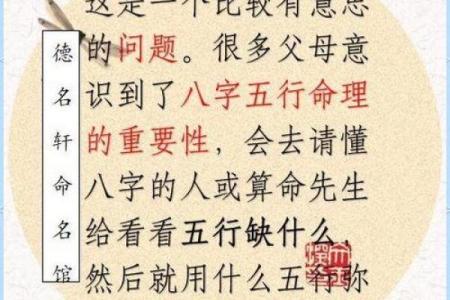 这是一个比较有意思
的问题。很多父母意
识到了八字五行命理
的重要性，会去请懂
八字的人或算命先生
给看看五行缺什么
然后就用什么五行弥
德名轩命名馆